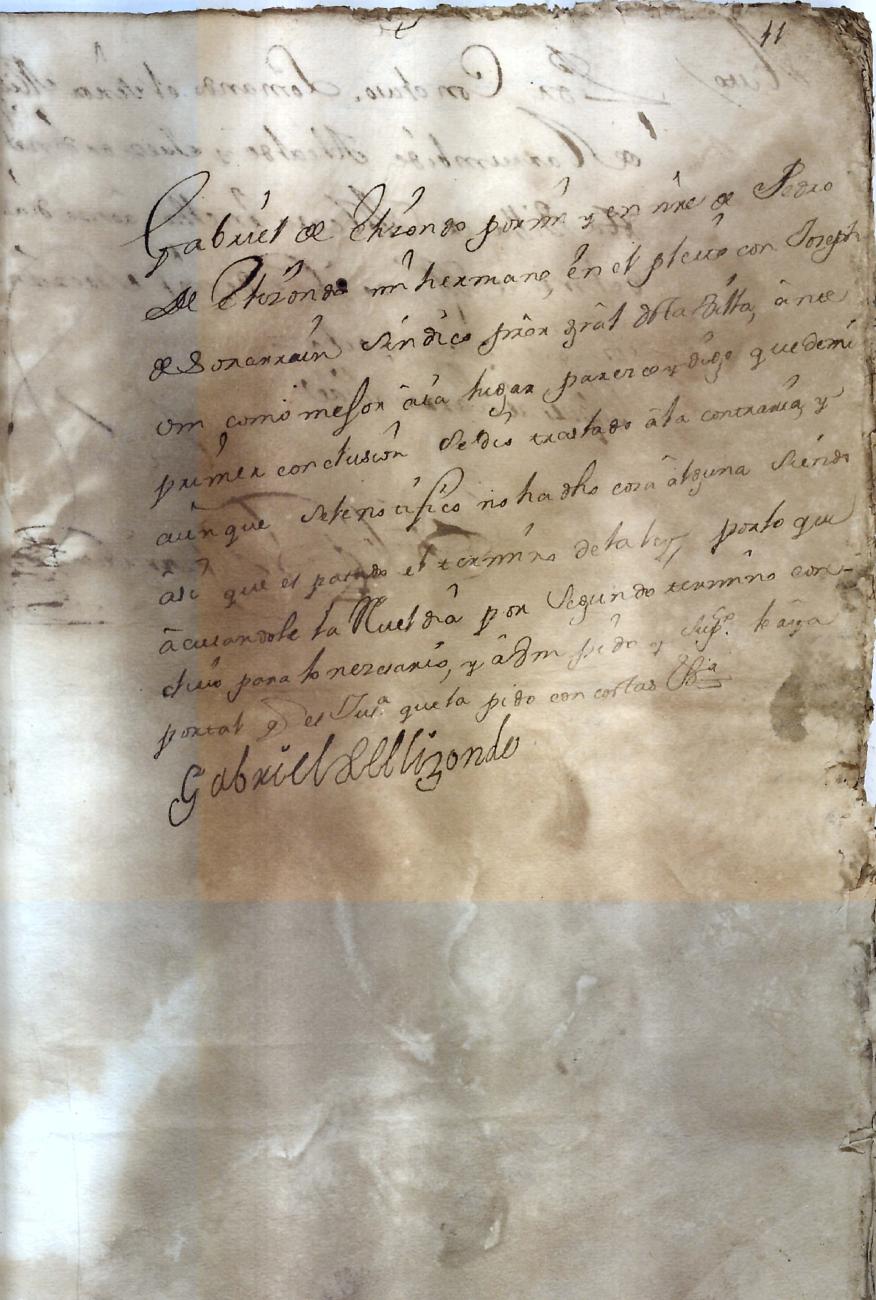 11
Gabriel de Elizondo por mi y en nre de Pedro
de Elizondo mi hermano, en el pleito con Joseph
de Sorarrain Sindico pror gral desta Villa, ante
Vm como mejor aia lugar parezco y digo que de mi
primer conclusion se dio traslado a la contraria, y
aunque se le notifico no ha dho cosa alguna siendo
asi que es pasado el termino de la ley, por lo que
acusandole la Rueldia por Segundo termino con-
cluio para lo nezesario, y a Vm pido y Supco. le aya
por tal q es Jusa. que la pido con costas
Gabriel de Elizondo